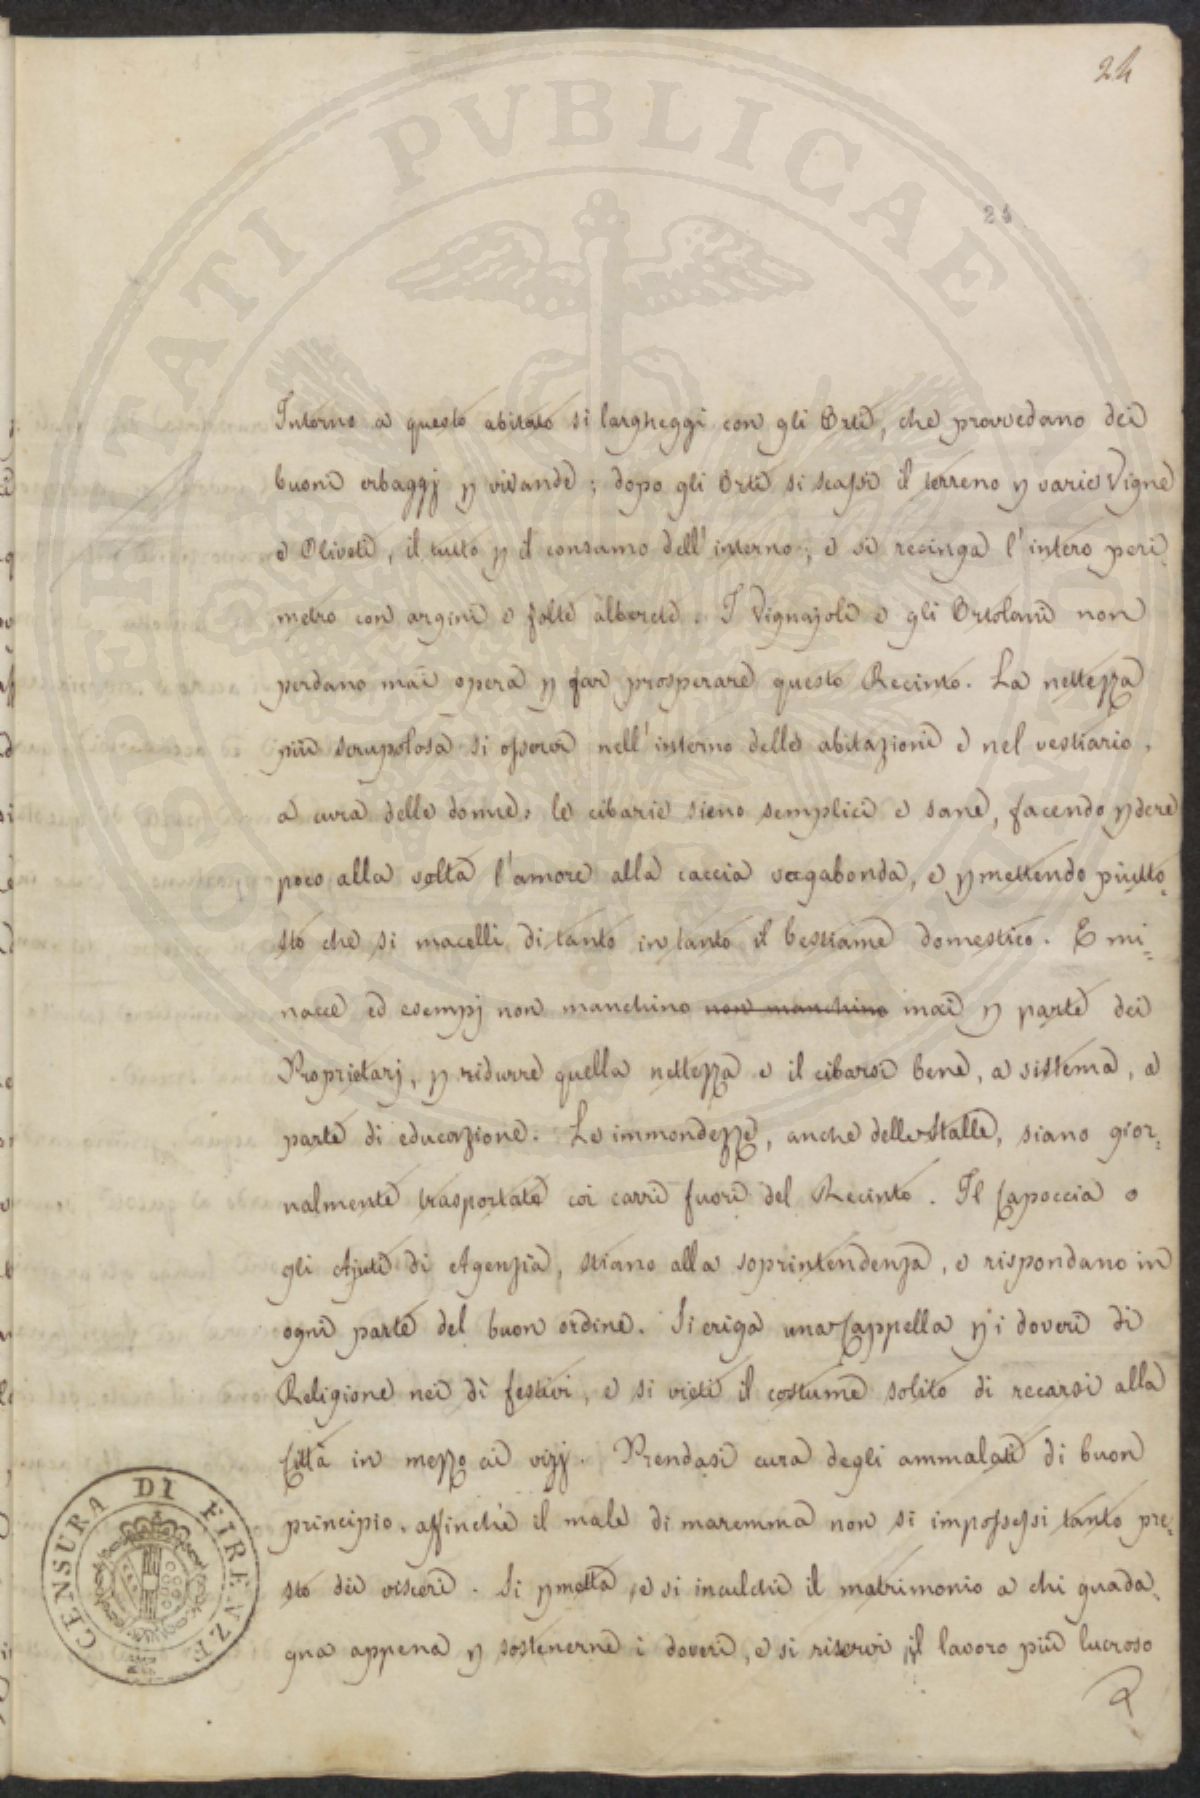 24
24
Intorno a questo abitato si largheggi con gli Orti, che provvedano dei
buoni erbaggj p vivande; dopo gli Orti si scassi il terreno p varie Vigne
e Oliveti, il tutto p il consumo dell'interno; e si recinga l'intero peri-
metro con argini e folte alberete. I Vignajoli e gli Ortolani non
perdano mai opera p far prosperare questo Recinto. La nettezza
più scrupolosa si osservi nell'interno delle abitazioni e nel vestiario,
a cura delle donne; le cibarie sieno semplici e sane, facendo pdere
poco alla volta l'amore alla caccia vagabonda, e pmettendo piutto-
sto che si macelli di tanto in tanto il bestiame domestico. E mi-
nacce ed esempj non manchino non manchino mai p parte dei
Proprietarj, p ridurre quella nettezza e il cibarsi bene, a sistema, a
parte di educazione. Le immondezze, anche delle Stalle, siano gior-
nalmente trasportate coi carri fuori del Recinto. Il Capoccia o
gli Ajuti di Agenzia, stiano alla soprintendenza, e rispondano in
ogni parte del buon ordine. Si eriga una Cappella p i doveri di
Religione nei dì festivi, e si vieti il costume solito di recarsi alla
Città in mezzo ai vizj. Prendasi cura degli ammalati di buon
principio, affinchè il male di maremma non si impossessi tanto pre-
sto dei visceri. Si pmetta, e si inculchi il matrimonio a chi guada-
gna appena p sostenerne i doveri, e si riservi il lavoro più lucroso
CENSURA DI FIRENZE
PROSPERITATI PVBLICAE